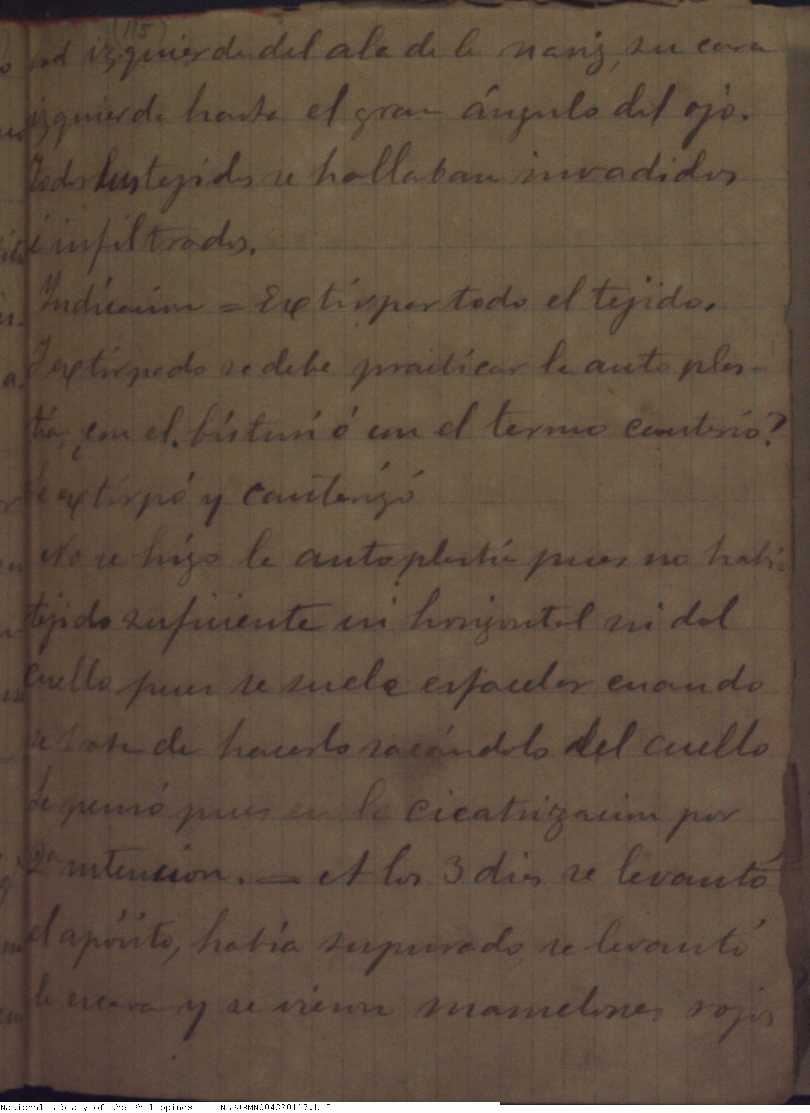 (115)
izquierda del ala de la nariz, su cara
izquierda hasta el gran ángulo del ojo.
Todos los tejidos se hallaban invadidos
é infiltrados.
Indicacion = Extirpar todo el tejido.
Y extirpado se debe practicar la autoplas-
tia, ¿con el bisturi ó con el termo cauterio?
Se extirpó y cauterizó
No se hizo la autoplastia pues no habia
tejido suficiente ni horizontal ni del
cuello pues se suele esfacelar cuando
se trata de hacerlo sacándolo del cuello
Se pensó pues en la cicatrizacion por
2ª intencion. — A los 3 dias se levantó
el apósito, había supurado, se levantó
la escara y se vieron mamelones rojos
National Library of the Philippines